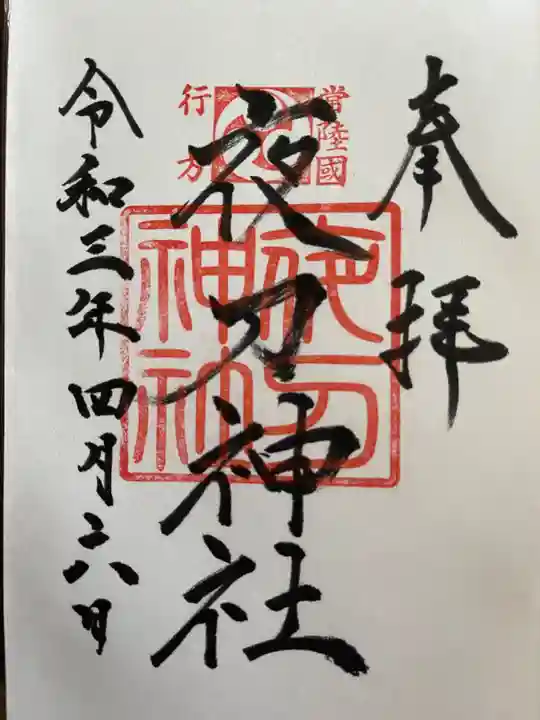 奉拝
常陸國
行方
夜刀神社
夜刀神社
令和三年四月二八日